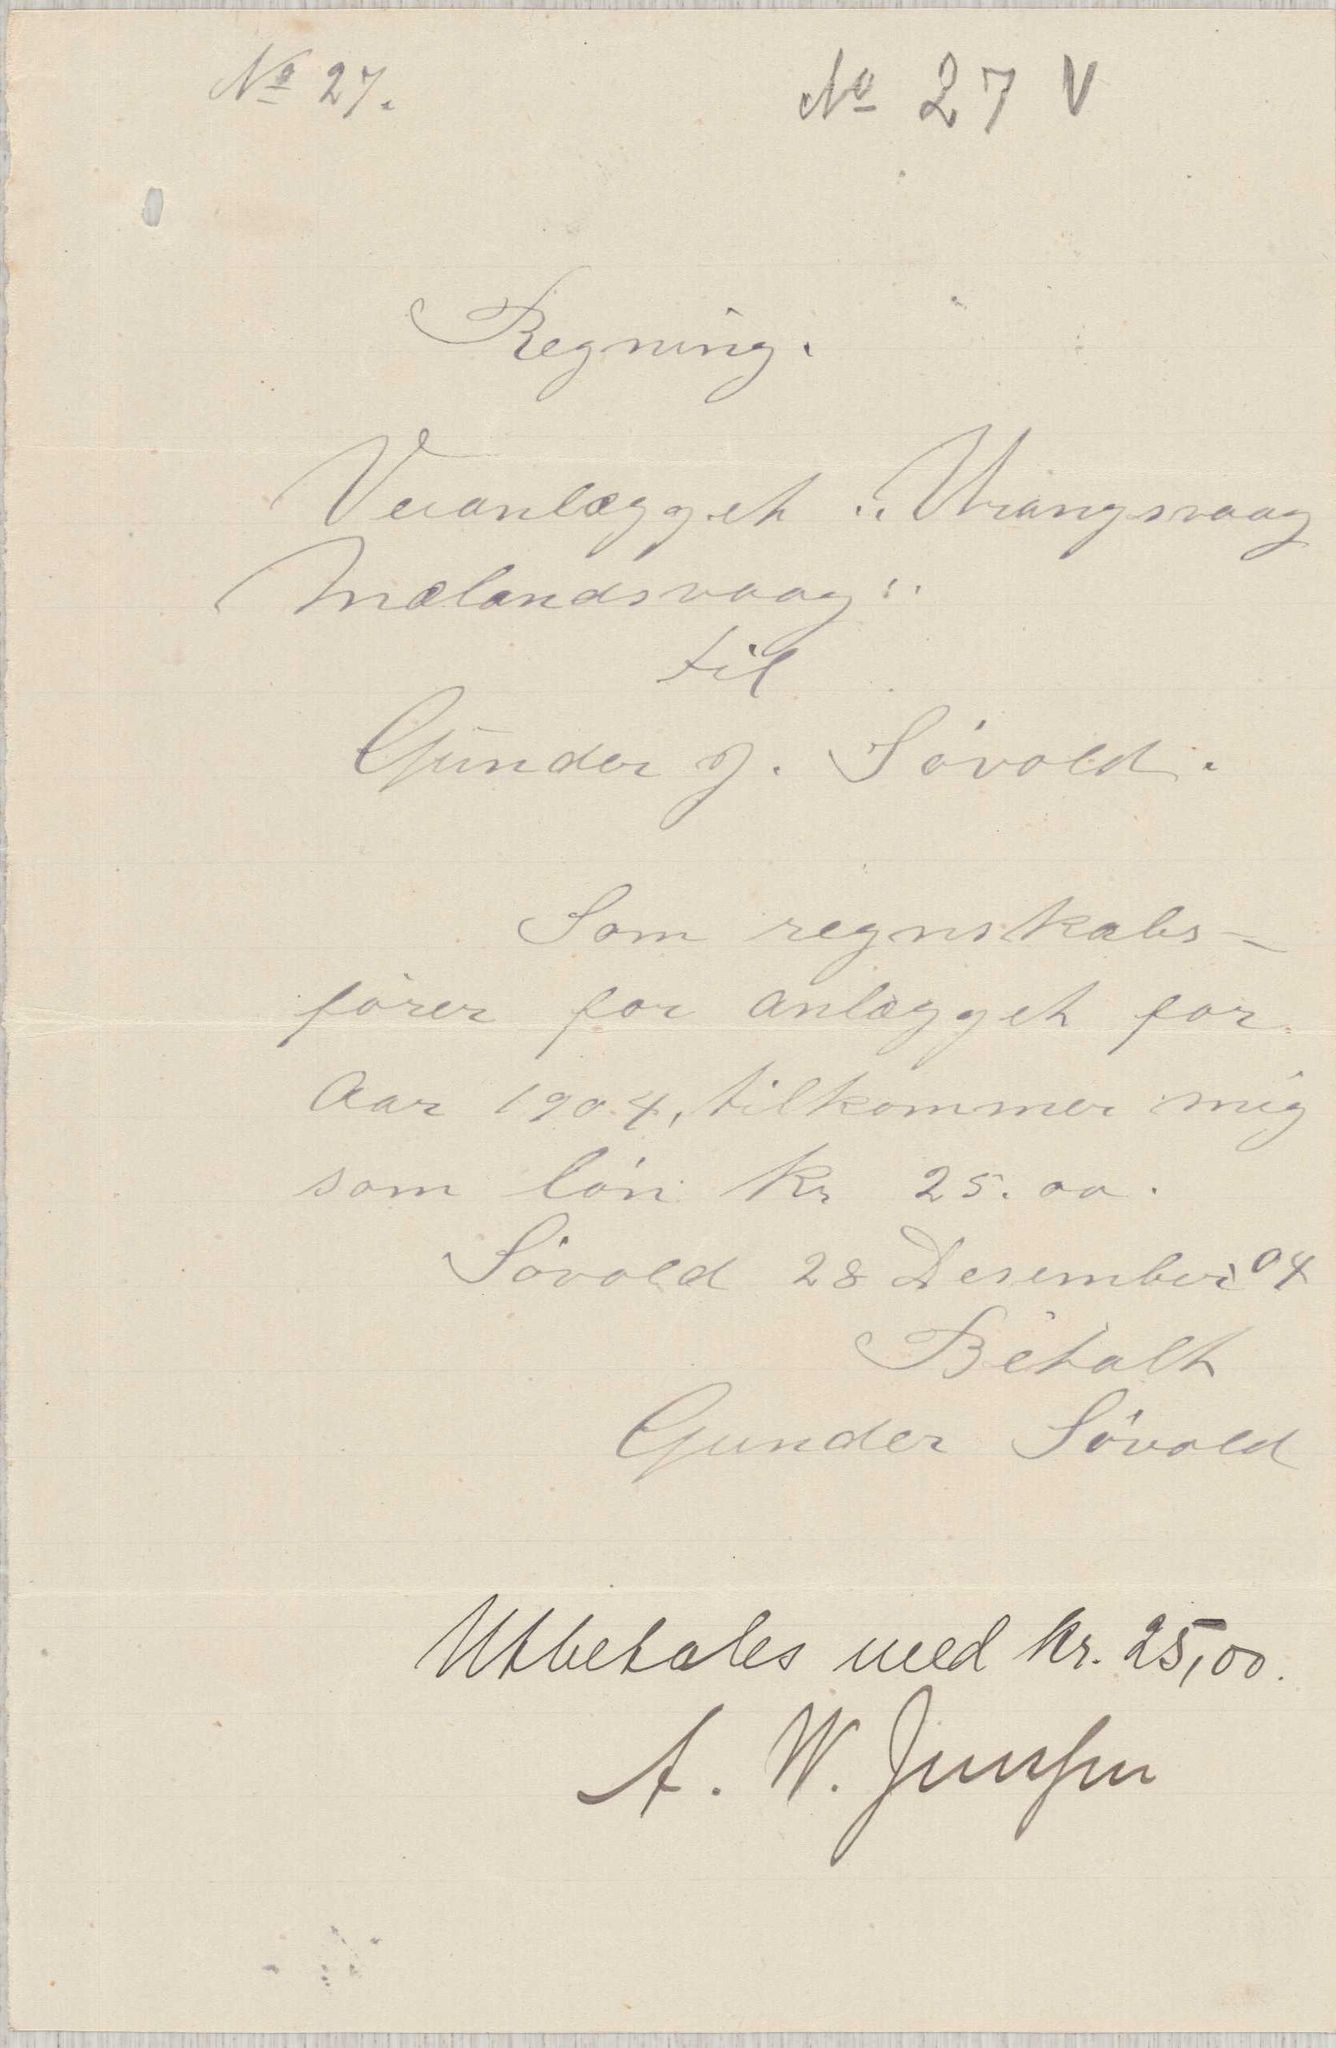 No 27.
No 27 V
Regning.
Veianlægget „Vrangsvaag
Mælandsvaag"
til
Gunder J. Sövold.
Som regnskabs-
förer for anlægget for
Aar 1904, tilkommer mig
som lön kr 25.00.
Sövold 28 Desember 04
Betalt
Gunder Sövold
Utbetales med kr. 25,00.
A. W.